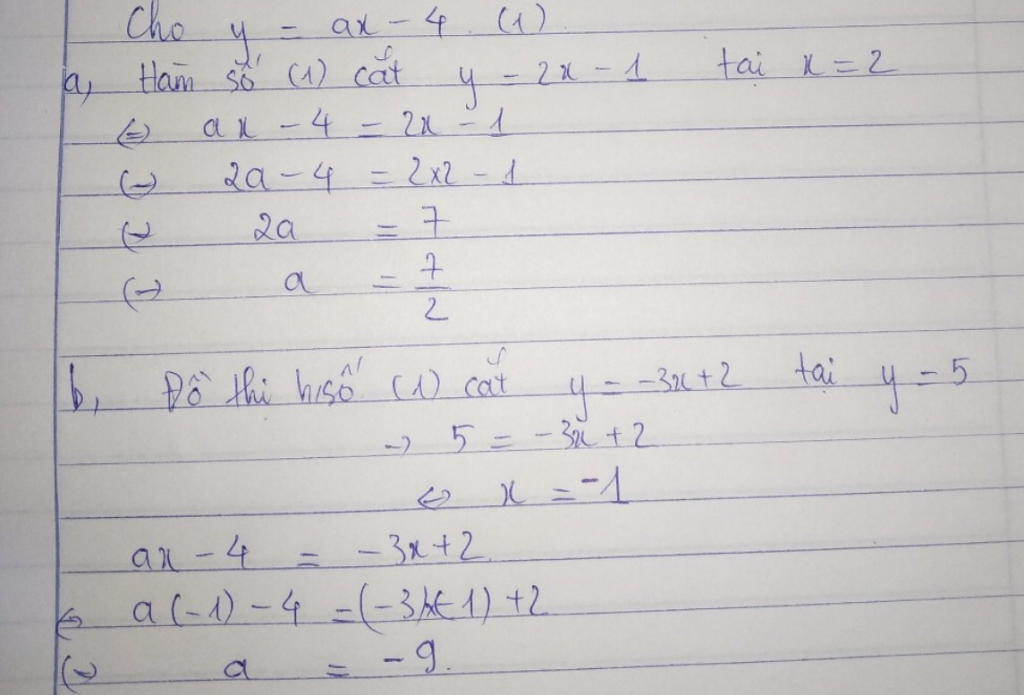 Cho y = ax - 4. (1)
a, Hàm số (1) cắt y = 2x - 1 tại x = 2
⇔ ax - 4 = 2x - 1
⇔ 2a - 4 = 2x2 - 1
⇔ 2a = 7
⇔ a = 7/2
b, Đồ thi h/số (1) cắt y = -3x+2 tại y = 5
→ 5 = -3x+2
⇔ x = -1
ax - 4 = -3x+2
⇔ a(-1) - 4 = (-3)x(-1) +2
⇔ a = -9.